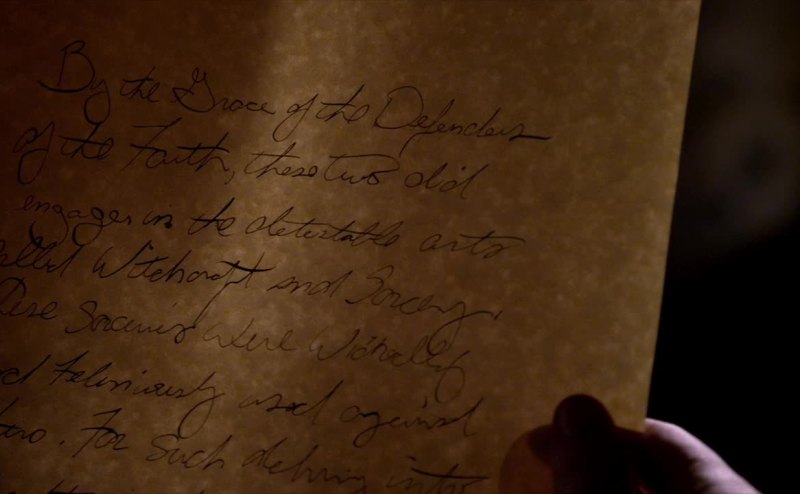 By the Grace of the Defenders
of the Faith, these two did
engage in the detestable arts
called Witchcraft and Sorcery,
were Wickedly
and Feloniously used against
For Such delving into